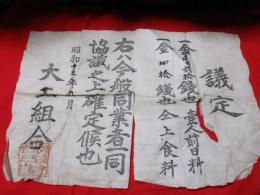 議定
一金壱円弐拾銭也 壱人前日料
一金四拾銭也 仝上食料
右ハ今般同業者一同
協議之上確定候也
昭和十三年 月
大工組合